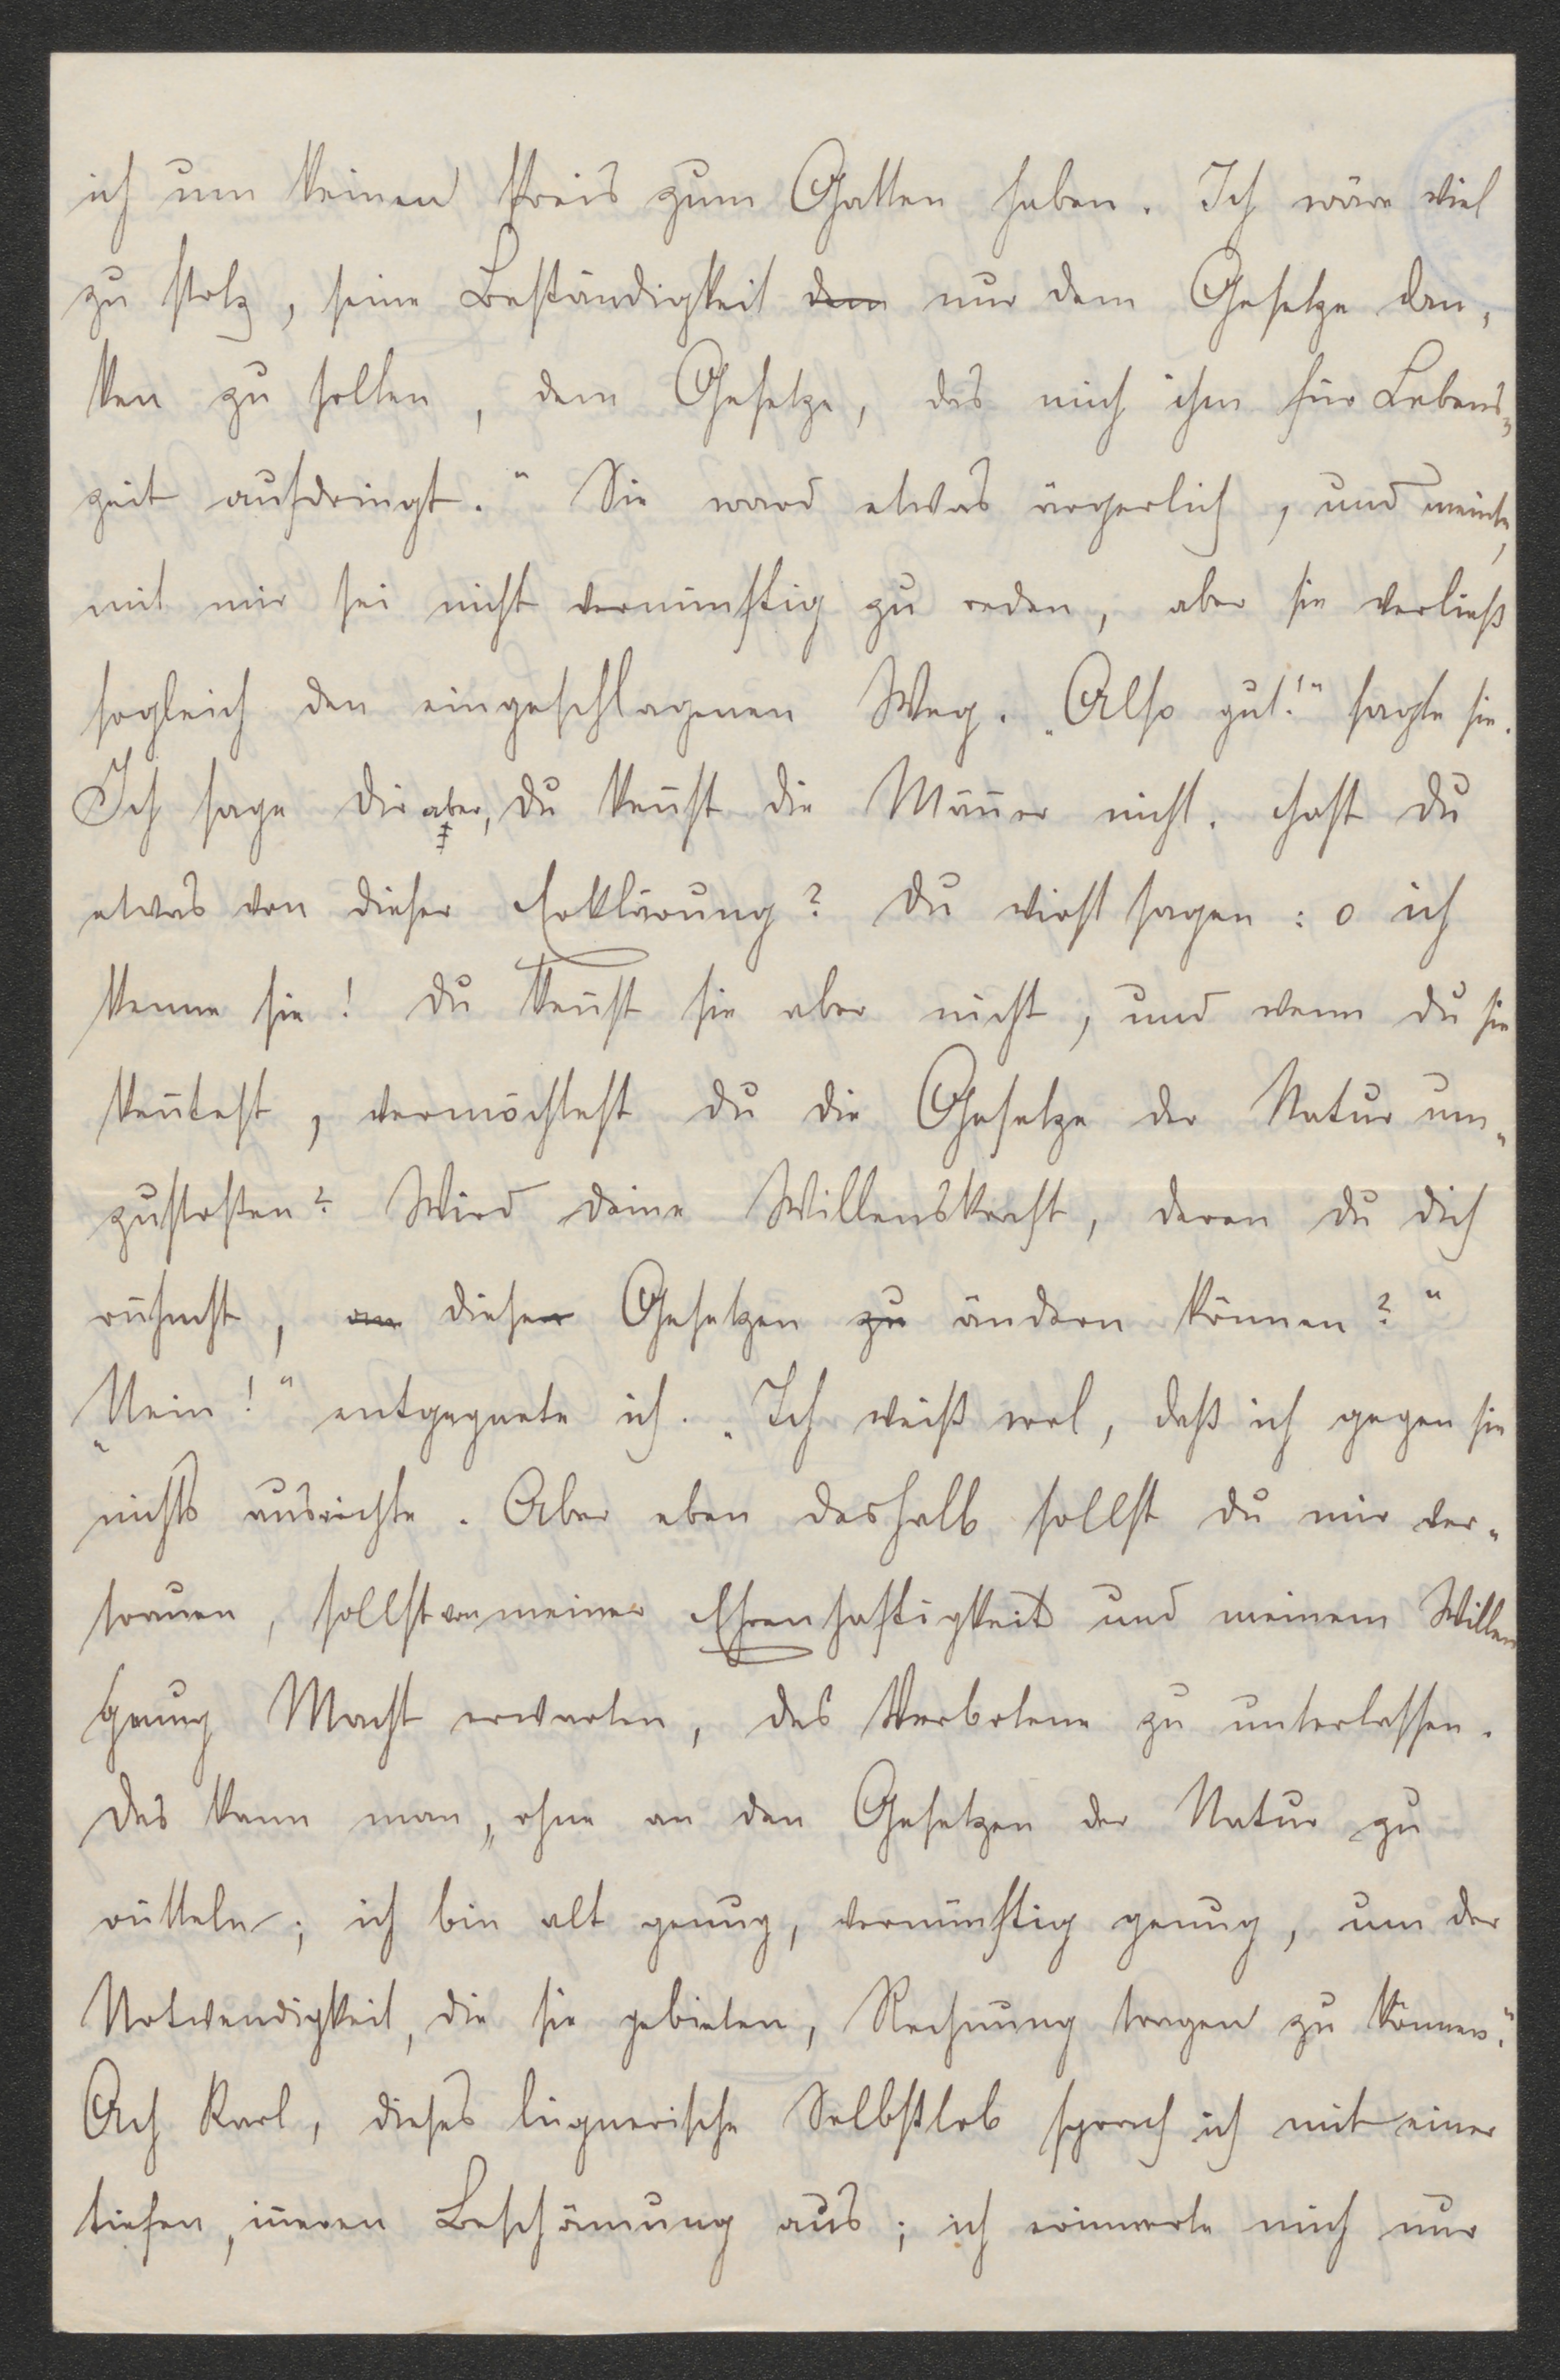 ich um keinen Preis zum Gatten haben. Ich wäre viel
zu stolz, seine Beständigkeit dem nur dem Gesetze dan-
ken zu sollen, dem Gesetze, das mich ihm für Lebens-
zeit aufdringt." Sie ward etwas ärgerlich, und meinte,
mit mir sei nicht vernünftig zu reden, aber sie verließ
sogleich den eingeschlagenen Weg. „Also gut!" sagte sie.
Ich sage dir aber, du ken̄st die Män̄er nicht. Hast du
etwas von dieser Erklärung? Du wirst sagen: o ich
kenne sie! Du ken̄st sie aber nicht, und wenn du sie
ken̄test, vermöchtest du die Gesetze der Natur um-
zustoßen? Wird deine Willenskraft, deren du dich
rühmst, an diesen Gesetzen zu ändern können?"
„Nein!" entgegnete ich. „Ich weiß wol, daß ich gegen sie
nichts ausrichte. Aber eben deshalb sollst du mir ver-
trauen, sollst von meiner Ehrenhaftigkeit und meinem Willen
genug Macht erwarten, das Verbotene zu unterlassen.
Das kann man, ohne an den Gesetzen der Natur zu
rütteln; ich bin alt genug, vernünftig genug, um der
Notwendigkeit, die sie gebieten, Rechnung tragen zu können."
Ach Karl, dieses lügnerische Selbstlob sprach ich mit einer
tiefen, in̄eren Beschämung aus; ich erinnerte mich nur